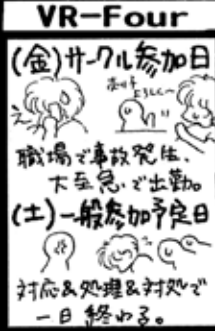 VR-Four
(金)サークル参加日
よろしく~
え~
職場で事故発生、
大至急で出勤。
(土)一般参加予定日
対応&処理&対処で
一日終わる。